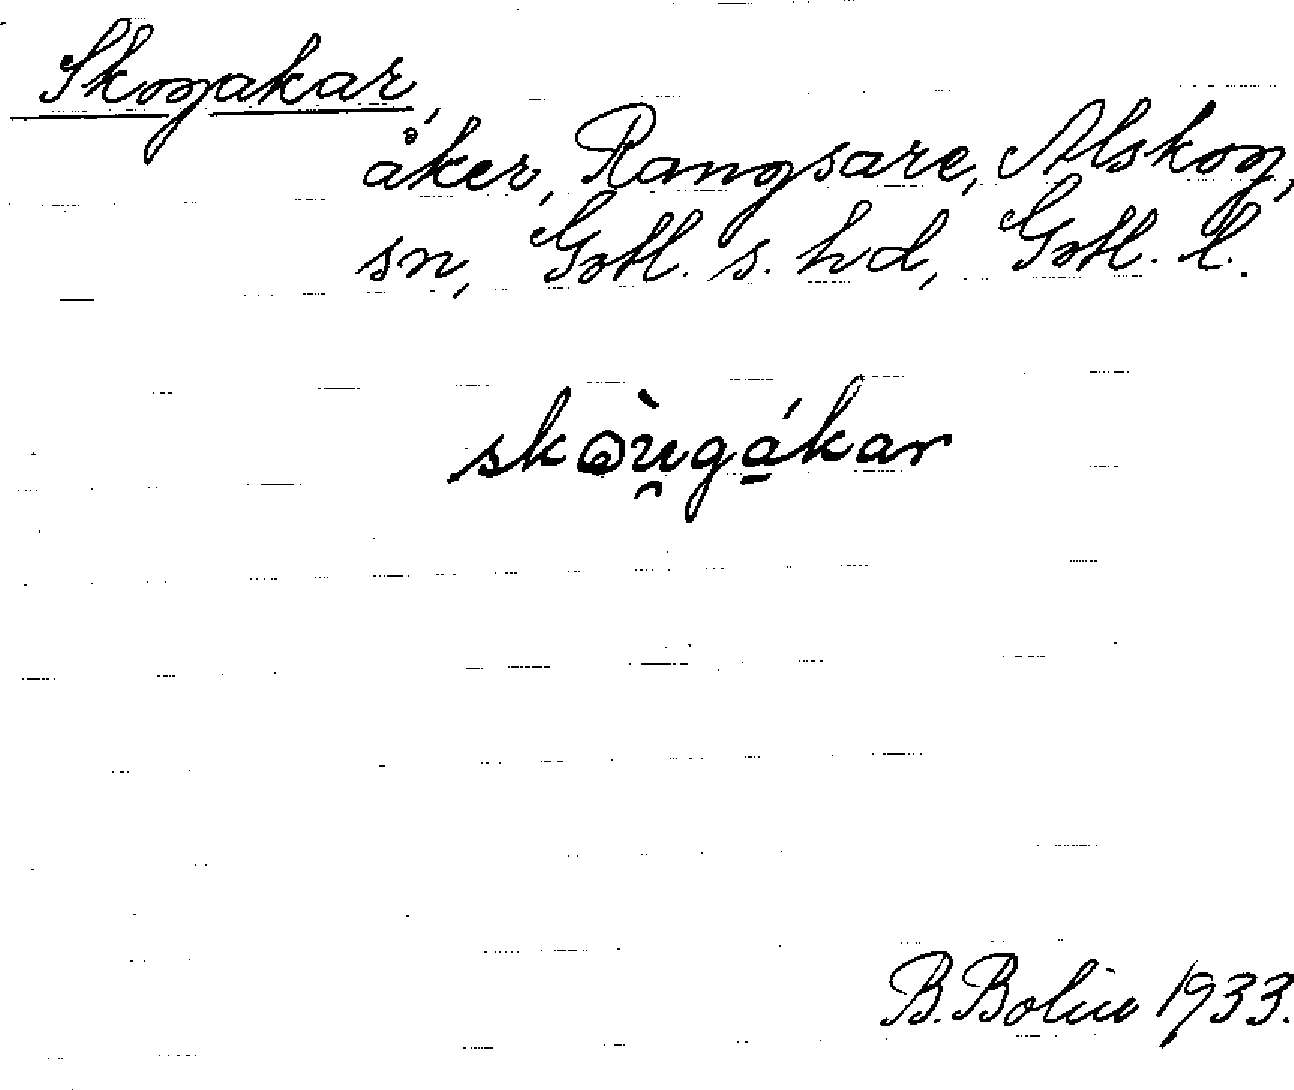 Skogakar,
åker, Rangsare, Alskog,
sn, Gotl. s. hd, Gotl. l.
skɷ̀u̯gá̱kar
B. Bolin 1933.